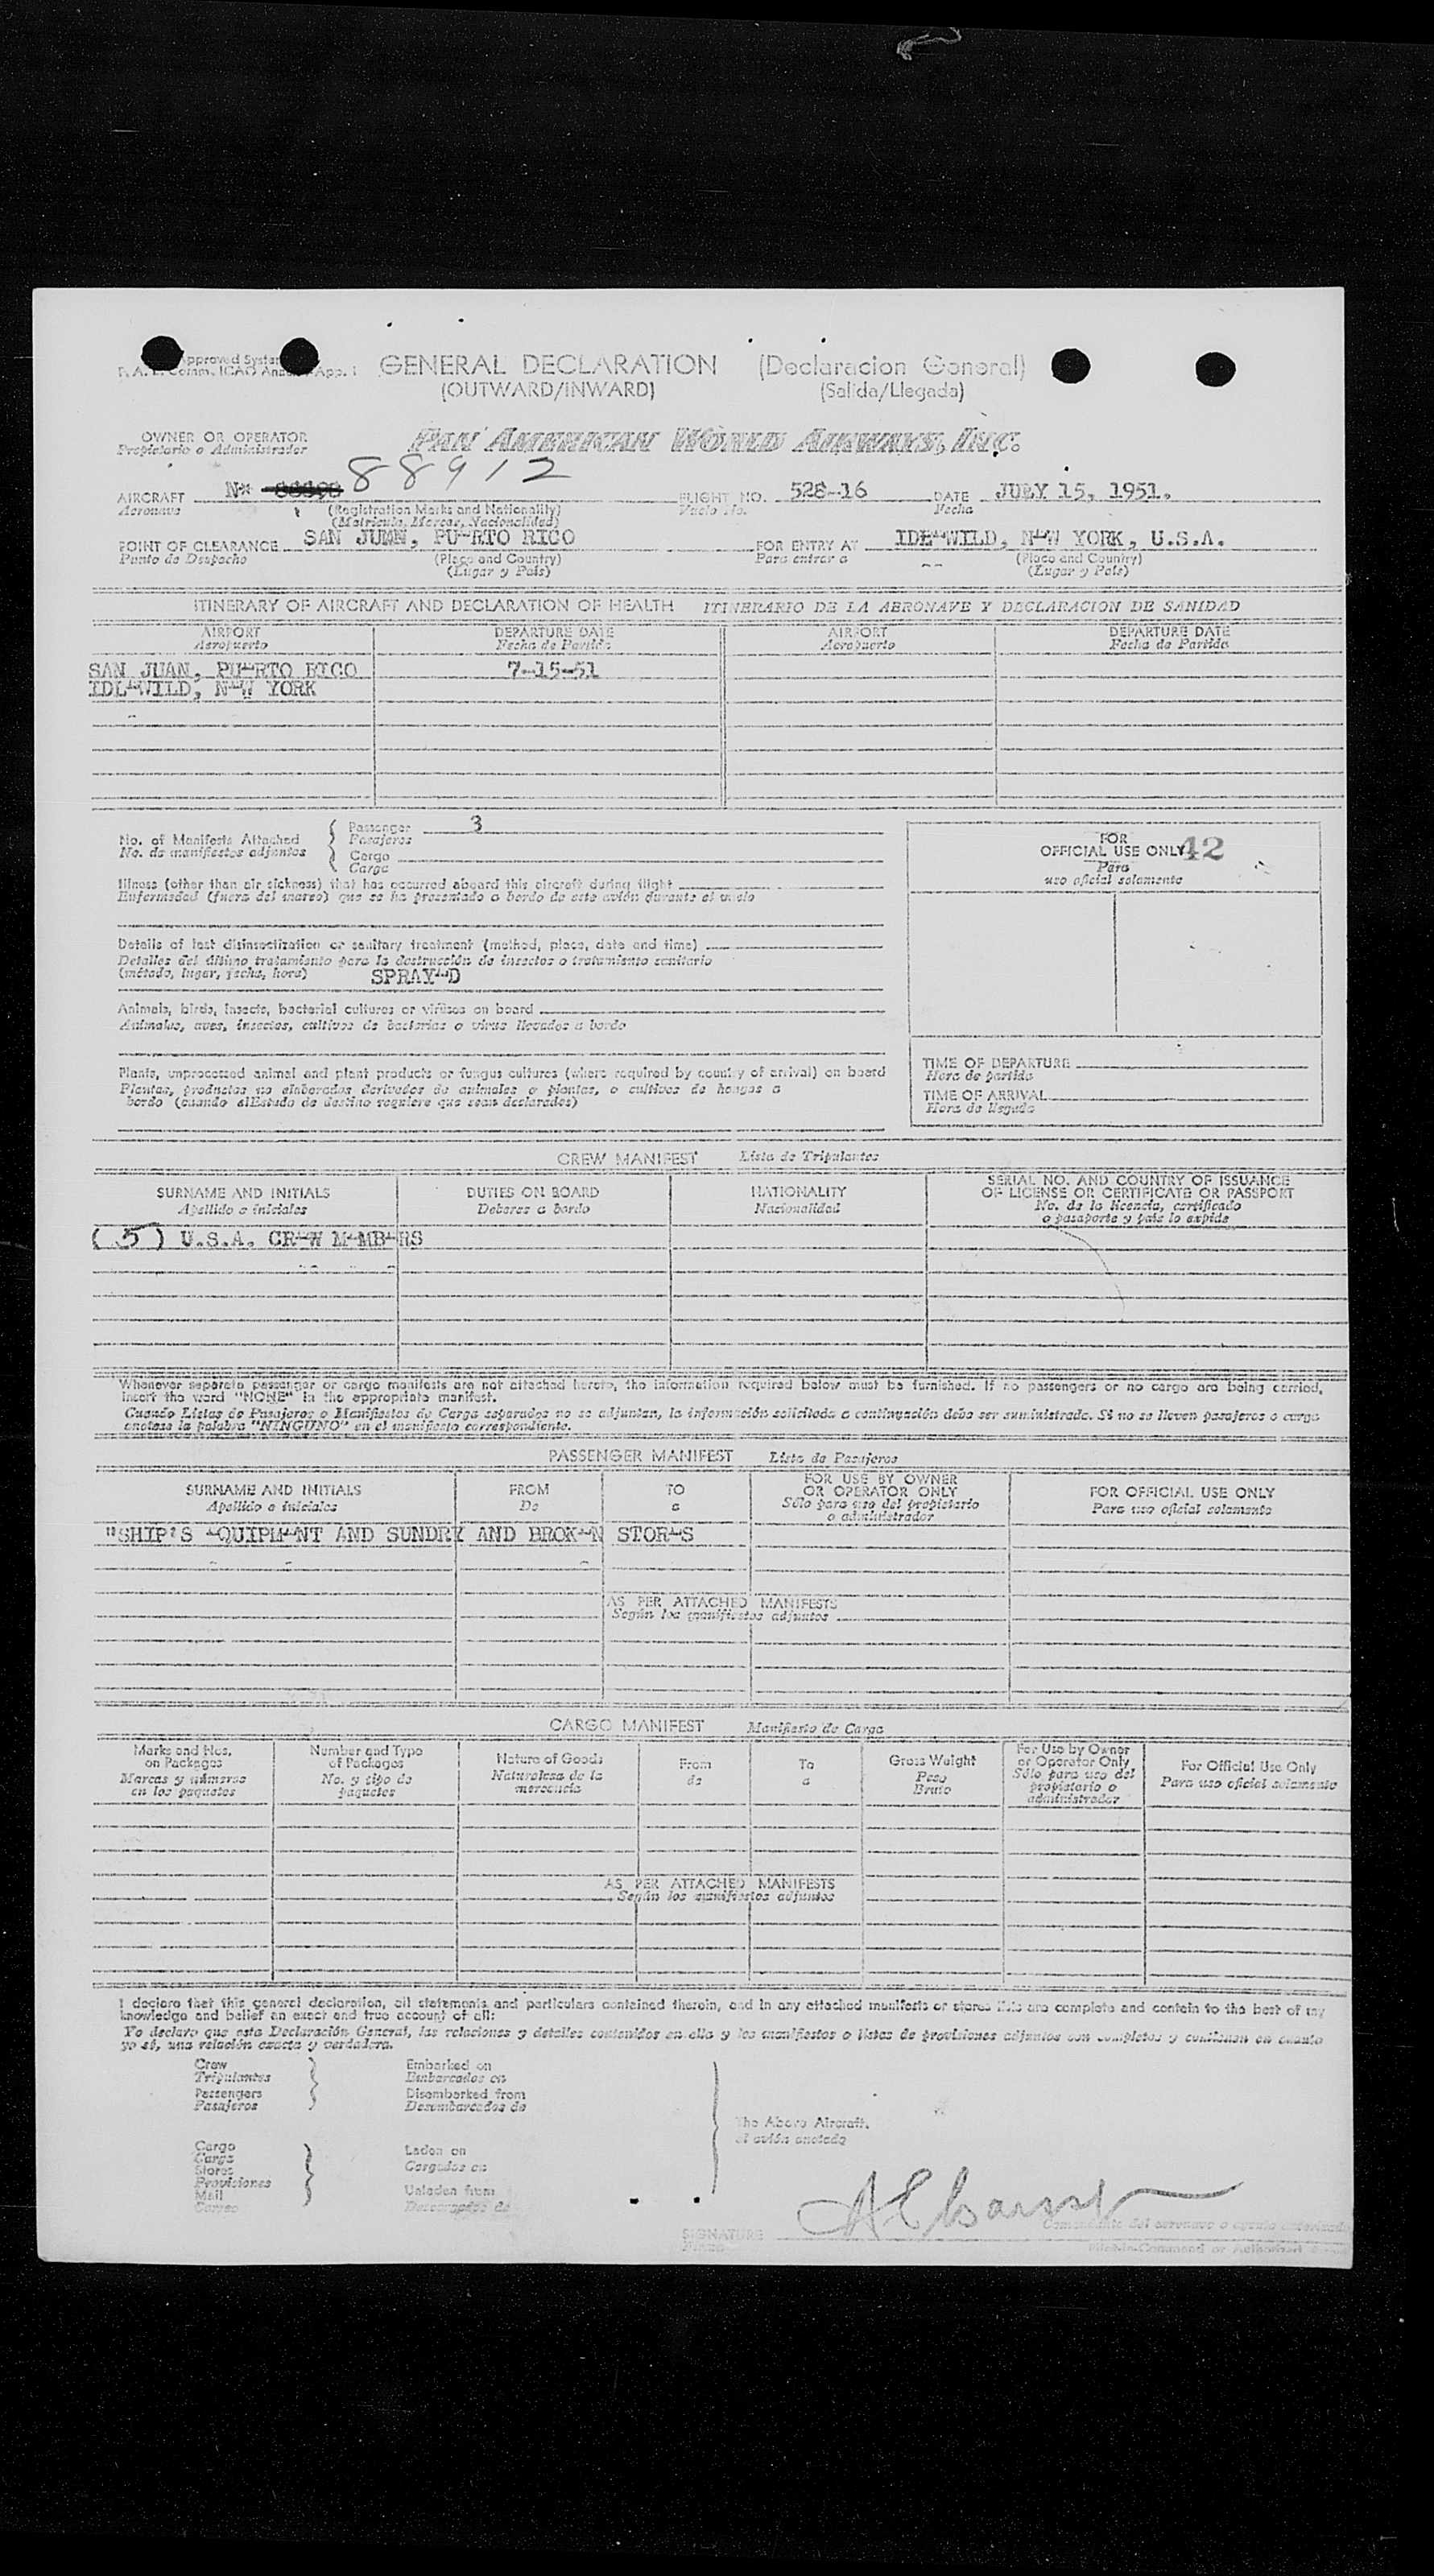 GENERAL DECLARATION (Declaracion General)
(OUTWARD/INWARD) (Salida/Llegada)
OWNER OR OPERATOR PAN AMERICAN WORLD AIRWAYS, INC.
Propietario o Administrador
AIRCRAFT N- 88912 FLIGHT NO. 528-16 DATE JULY 15, 1951.
Aeronave (Registration Marks and Nationality) Vuelo No. Fecha
(Matricula, Marcas, Nacionalidad)
POINT OF CLEARANCE SAN JUAN, PUERTO RICO FOR ENTRY AT IDLEWILD, NEW YORK, U.S.A.
Punto de Despacho (Place and Country) Para entrar a (Place and Country)
(Lugar y País) (Lugar y País)
ITINERARY OF AIRCRAFT AND DECLARATION OF HEALTH ITINERARIO DE LA AERONAVE Y DECLARACION DE SANIDAD
AIRPORT DEPARTURE DATE AIRPORT DEPARTURE DATE
Aeropuerto Fecha de Partida Aeropuerto Fecha de Partida
SAN JUAN, PUERTO RICO 7-15-51
IDLEWILD, NEW YORK
No. of Manifests Attached Passenger 3
No. de manifiestos adjuntos Pasajeros
Cargo
Carga
FOR
OFFICIAL USE ONLY 42
Para
uso oficial solamente
Illness (other than air sickness) that has occurred aboard this aircraft during flight
Enfermedad (fuera del mareo) que se ha presentado a bordo de este avión durante el vuelo
Details of last disinsectization or sanitary treatment (method, place, date and time)
Detalles del último tratamiento para la destrucción de insectos o tratamiento sanitario
(método, lugar, fecha, hora) SPRAYED
Animals, birds, insects, bacterial cultures or viruses on board
Animales, aves, insectos, cultivos de bacterias o virus llevados a bordo
Plants, unprocessed animal and plant products or fungus cultures (where required by country of arrival) on board
Plantas, productos no elaborados derivados de animales o plantas, o cultivos de hongos a
bordo (cuando el Estado de destino requiere que sean declarados)
TIME OF DEPARTURE
Hora de partida
TIME OF ARRIVAL
Hora de llegada
CREW MANIFEST Lista de Tripulantes
SURNAME AND INITIALS DUTIES ON BOARD NATIONALITY SERIAL NO. AND COUNTRY OF ISSUANCE
OF LICENSE OR CERTIFICATE OR PASSPORT
Apellido e iniciales Deberes a bordo Nacionalidad No. de la licencia, certificado
o pasaporte y país lo expide
(5) U.S.A. CREW MEMBERS
Whenever separate passenger or cargo manifests are not attached hereto, the information required below must be furnished. If no passengers or no cargo are being carried,
insert the word "NONE" in the appropriate manifest.
Cuando Listas de Pasajeros o Manifiestos de Carga separados no se adjuntan, la información solicitada a continuación debe ser suministrada. Si no se llevan pasajeros o carga
anótese la palabra "NINGUNO" en el manifiesto correspondiente.
PASSENGER MANIFEST Lista de Pasajeros
SURNAME AND INITIALS FROM TO FOR USE BY OWNER
OR OPERATOR ONLY FOR OFFICIAL USE ONLY
Apellido e iniciales De a Sólo para uso del propietario
o administrador Para uso oficial solamente
"SHIP'S EQUIPMENT AND SUNDRY AND BROKEN STORES
AS PER ATTACHED MANIFESTS
Según los manifiestos adjuntos
CARGO MANIFEST Manifiesto de Carga
Marks and Nos. on Packages Number and Type of Packages Nature of Goods From To Gross Weight For Use by Owner or Operator Only For Official Use Only
Marcas y números en los paquetes No. y tipo de paquetes Naturaleza de la mercancía de a Peso Bruto Sólo para uso del propietario o administrador Para uso oficial solamente
AS PER ATTACHED MANIFESTS
Según los manifiestos adjuntos
I declare that this general declaration, all statements and particulars contained therein, and in any attached manifests or stores lists are complete and contain to the best of my
knowledge and belief an exact and true account of all:
Yo declaro que esta Declaración General, las relaciones y detalles contenidos en ella y los manifiestos o listas de provisiones adjuntos son completos y contienen en cuanto
yo sé, una relación exacta y verdadera.
Crew Embarked on
Tripulantes Embarcados en
Passengers Disembarked from
Pasajeros Desembarcados de
The Above Aircraft.
el avión anotado
Cargo Laden on
Carga Cargados en
Stores
Provisiones
Mail Unladen from
Correo
SIGNATURE
Firma